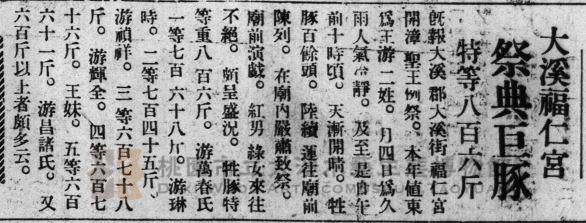 大溪福仁宮
祭典巨豚
特等八百六斤
既報大溪郡大溪街福仁宮
開漳聖王例祭。本年值東
爲王游二姓。月四日爲久
雨人氣靜。及至是日午
前十時頃。天漸開晴。牲
豚百餘頭。陸續運往廟前
陳列。在廟內嚴肅致祭。
廟前演戲。紅男綠女來往
不絕。頗呈盛況。牲豚特
等重八百六斤。游萬春氏
一等七百六十八斤。游琳
時。二等七百四十五斤。
游禎祥。三等六百七十八
斤。游輝全。四等六百七
十六斤。王妹。五等六百
六十一斤。游昌諸氏。又
六百斤以上者頗多云。
桃園市立大溪木藝生態博物館